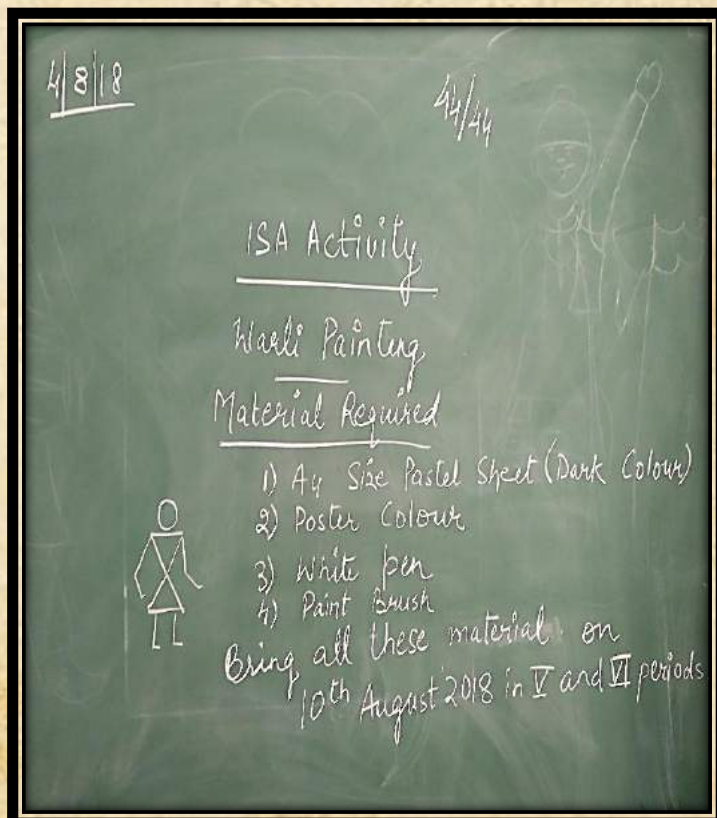 4/8/18
44/44
ISA Activity
Warli Painting
Material Required
1) A4 Size Pastel Sheet (Dark Colour)
2) Poster Colour
3) White pen
4) Paint Brush
Bring all these material on
10th August 2018 in V and VI periods